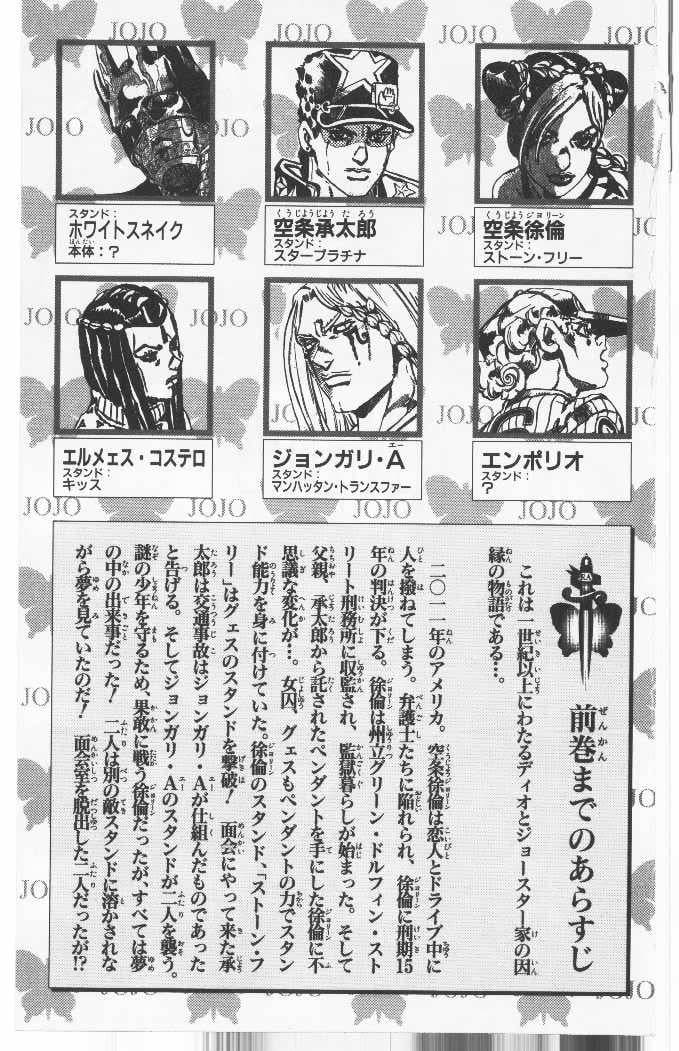 JOJO
JOJO
JOJO
JOJO
JOJO
空条徐倫
くうじょうジョリーン
スタンド：
ストーン・フリー
空条承太郎
くうじょうじょうたろう
スタンド：
スタープラチナ
スタンド：
ホワイトスネイク
本体：？
ほんたい
JOJO
JOJO
JOJO
エンポリオ
スタンド：
？
ジョンガリ・A
エー
スタンド：
マンハッタン・トランスファー
エルメェス・コステロ
スタンド：
キッス
JOJO
JOJO
JOJO
JOJO
JOJO
前巻までのあらすじ
ぜんかん
これは一世紀以上にわたるディオとジョースター家の因
縁の物語である…。
二〇一一年のアメリカ。空条徐倫は恋人とドライブ中に
人を撥ねてしまう。弁護士たちに陥れられ、徐倫に刑期15
年の判決が下る。徐倫は州立グリーン・ドルフィン・スト
リート刑務所に収監され、監獄暮らしが始まった。そして
父親、承太郎から託されたペンダントを手にした徐倫に不
思議な変化が…。女囚、グェスもペンダントの力でスタン
ド能力を身に付けていた。徐倫のスタンド、「ストーン・フ
リー」はグェスのスタンドを撃破！　面会にやって来た承
太郎は交通事故はジョンガリ・Aが仕組んだものであった
と告げる。そしてジョンガリ・Aのスタンドが二人を襲う。
謎の少年を守るため、果敢に戦う徐倫だったが、すべては夢
の中の出来事だった！　二人は別の敵スタンドに溶かされな
がら夢を見ていたのだ！　面会室を脱出した二人だったが!?